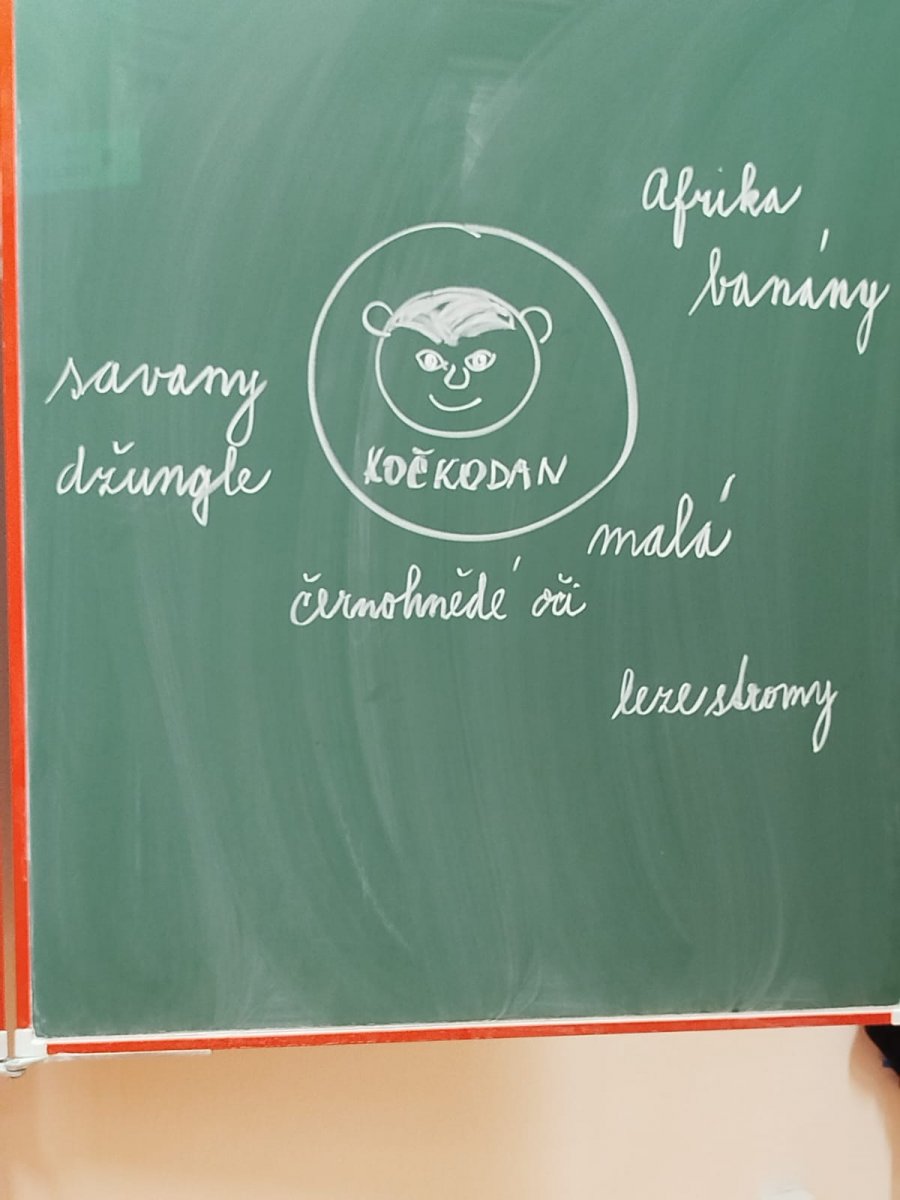 Afrika
banány
savany
džungle
KOČKODAN
malá
černohnědé oči
leze stromy